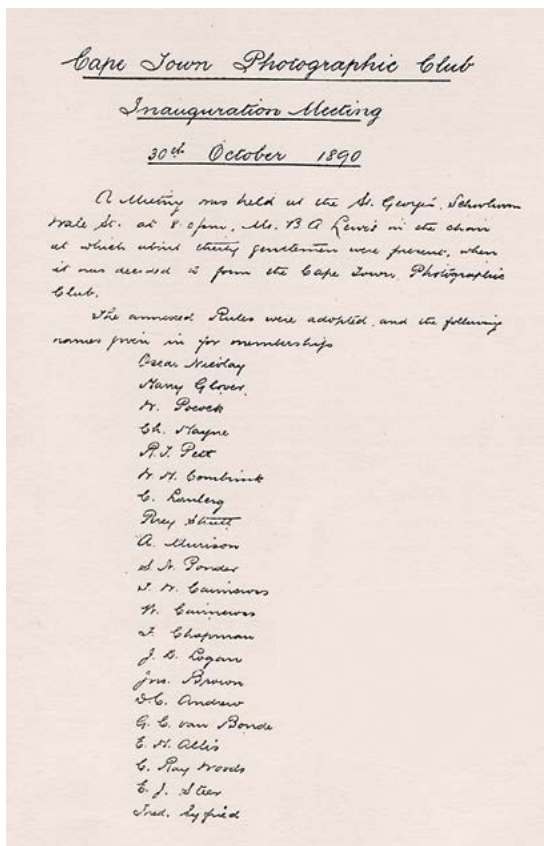 Cape Town Photographic Club
Inauguration Meeting
30th October 1890
A Meeting was held at the St. George's, Schoolroom
Wale St. at 8. o pm, Mr. B A Lewis in the chair
at which about thirty gentlemen were present, when
it was decided to form the Cape Town Photographic
Club.
The annexed Rules were adopted, and the following
names given in for memberships
Oscar Nicolay
Harry Glover
W. Pocock
Ch. Mayne
R. T. Pett
W. H. Combrink
C. Lanberg
Percy
A. Murison
S. N. Ponder
J. W. Cairncross
W. Cairncross
F. Chapman
J. D. Logan
Jno. Brown
D. C. Andrew
G. C. van Bonde
E. H. Allis
C. Ray Woods
E. J. Steer
Fred.